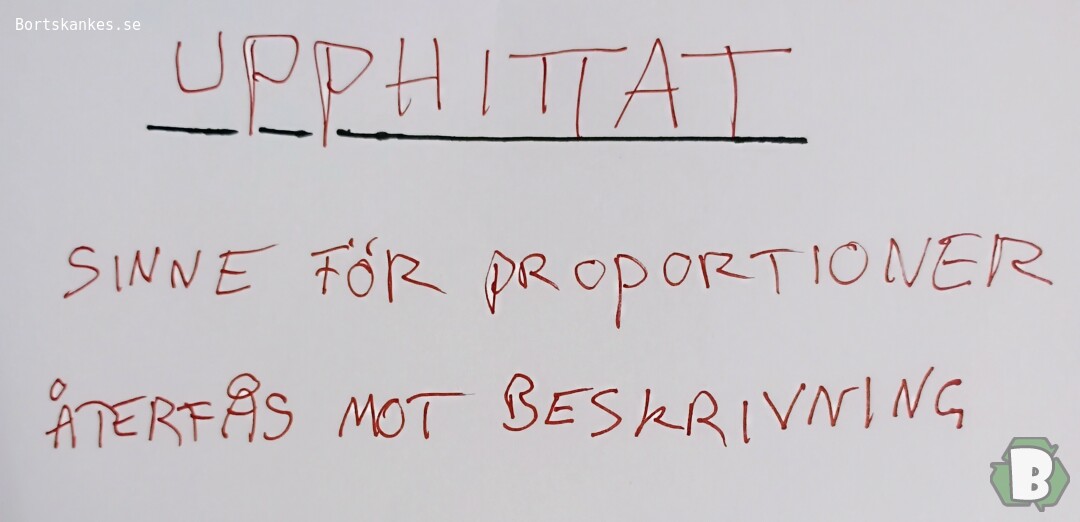 Bortskankes.se
UPPHITTAT
SINNE FÖR PROPORTIONER
ÅTERFÅS MOT BESKRIVNING
B